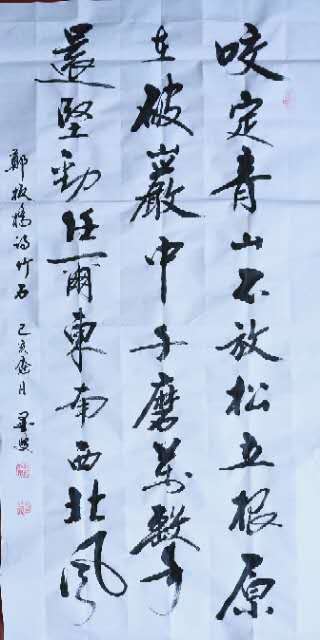 咬定青山不放松立根原
在破巖中千磨萬擊
還堅勁任爾東南西北風
鄭板橋詩竹石 己亥月